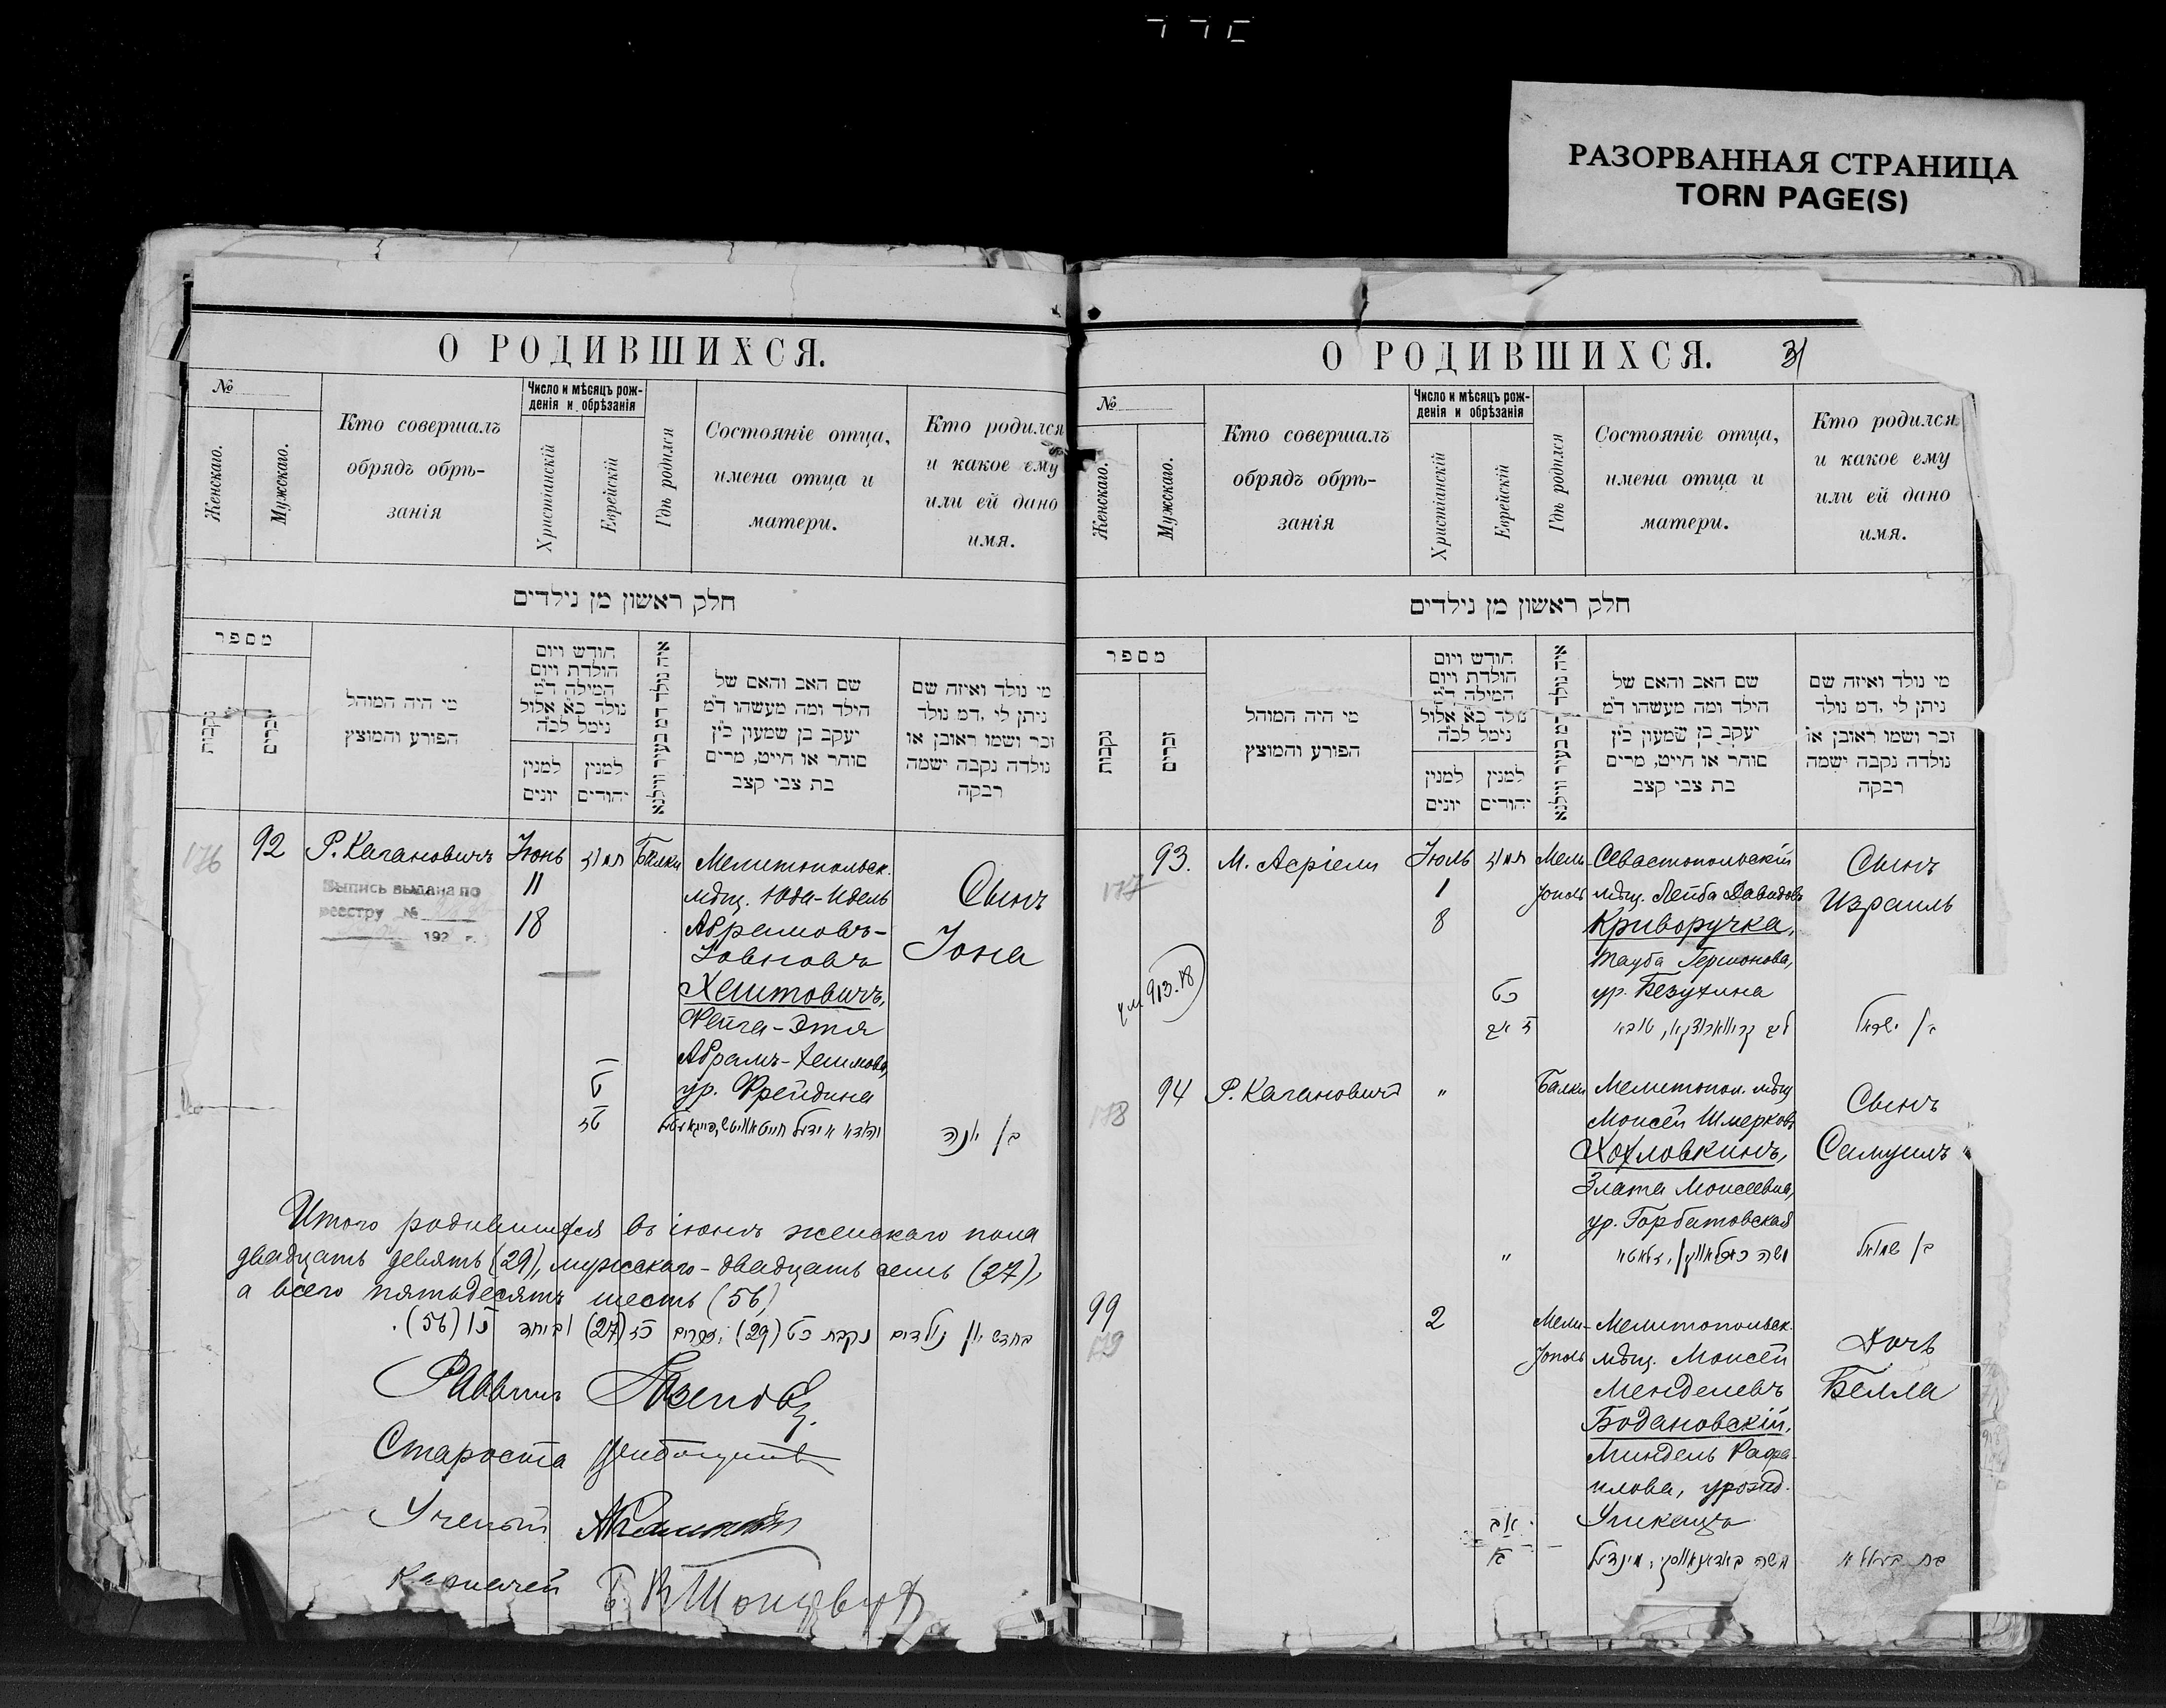 РАЗОРВАННАЯ СТРАНИЦА
TORN PAGE(S)
О РОДИВШИХСЯ.
№
Женскаго.
Мужскаго.
Кто совершалъ
обрядъ обрѣ-
занія
Число и мѣсяцъ рож-
денія и обрѣзанія
Христіанскій
Еврейскій
Гдѣ родился
Состояніе отца,
имена отца и
матери.
Кто родился
и какое ему
или ей дано
имя.
חלק ראשון מן נילדים
מספר
נקבות
זכרים
מי היה המוהל
הפורע והמוצץ
חודש ויום
הולדת ויום
המילה ד״מ
נולד כ״א אלול
נימל לכ״ה
למנין
יונים
למנין
יהודים
איה נולד ד״מ בעיר ווילנא
שם האב והאם של
הילד ומה מעשהו ד״מ
יעקב בן שמעון כ״ץ
סוחר או חייט, מרים
בת צבי קצב
מי נולד ואיזה שם
ניתן לי ,דמ נולד
זכר ושמו ראובן או
נולדה נקבה ישמה
רבקה
176
92
Р. Кагановичъ
Выпись выдана по
реестру №
192 г.
Іюнь
11
18
תמוז
ט
טז
Балки
Мелитопольск.
мѣщ. Юда-Идель
Абрамовъ-
Іовновъ
Хеитовичъ,
Фейга-Этя
Абрамъ-Хаимова,
ур. Фрейдина
Сынъ
Іона
בן יונה
Итого родившихся въ іюнѣ женскаго пола
двадцать девять (29), мужскаго - двадцать семь (27),
а всего пятьдесятъ шесть (56)
בחדש יון נולדים נקבת כט (29) זכרים כז (27) וביחד נו (56).
Раввинъ
Староста
Ученый
Казначей
О РОДИВШИХСЯ.
31
№
Женскаго.
Мужскаго.
Кто совершалъ
обрядъ обрѣ-
занія
Число и мѣсяцъ рож-
денія и обрѣзанія
Христіанскій
Еврейскій
Гдѣ родился
Состояніе отца,
имена отца и
матери.
Кто родился
и какое ему
или ей дано
имя.
חלק ראשון מן נילדים
מספר
נקבות
זכרים
מי היה המוהל
הפורע והמוצץ
חודש ויום
הולדת ויום
המילה ד״מ
נולד כ״א אלול
נימל לכ״ה
למנין
יונים
למנין
יהודים
איה נולד ד״מ בעיר ווילנא
שם האב והאם של
הילד ומה מעשהו ד״מ
יעקב בן שמעון כ״ץ
סוחר או חייט, מרים
בת צבי קצב
מי נולד ואיזה שם
ניתן לי ,דמ נולד
זכר ושמו ראובן או
נולדה נקבה ישמה
רבקה
177
93.
М. Асріели
Іюль
1
8
תמוז
כט
Мели-
тополь
Севастопольскій
мѣщ. Лейба Давидовъ
Криворучка,
Тауба Гершонова,
ур. Безухина
Сынъ
Израиль
בן ישראל
178
94
Р. Кагановичъ
"
"
Балки
Мелитопол. мѣщ
Моисей Шмерковъ
Хохловкинъ,
Злата Моисеевна,
ур. Горбатовская
Сынъ
Самуилъ
בן שמואל
99
179
2
אב
Мели-
тополь
Мелитопольск.
мѣщ. Моисей
Менделевъ
Бодановскій,
Миндель Рафа-
илова, урожд.
Дочь
Белла